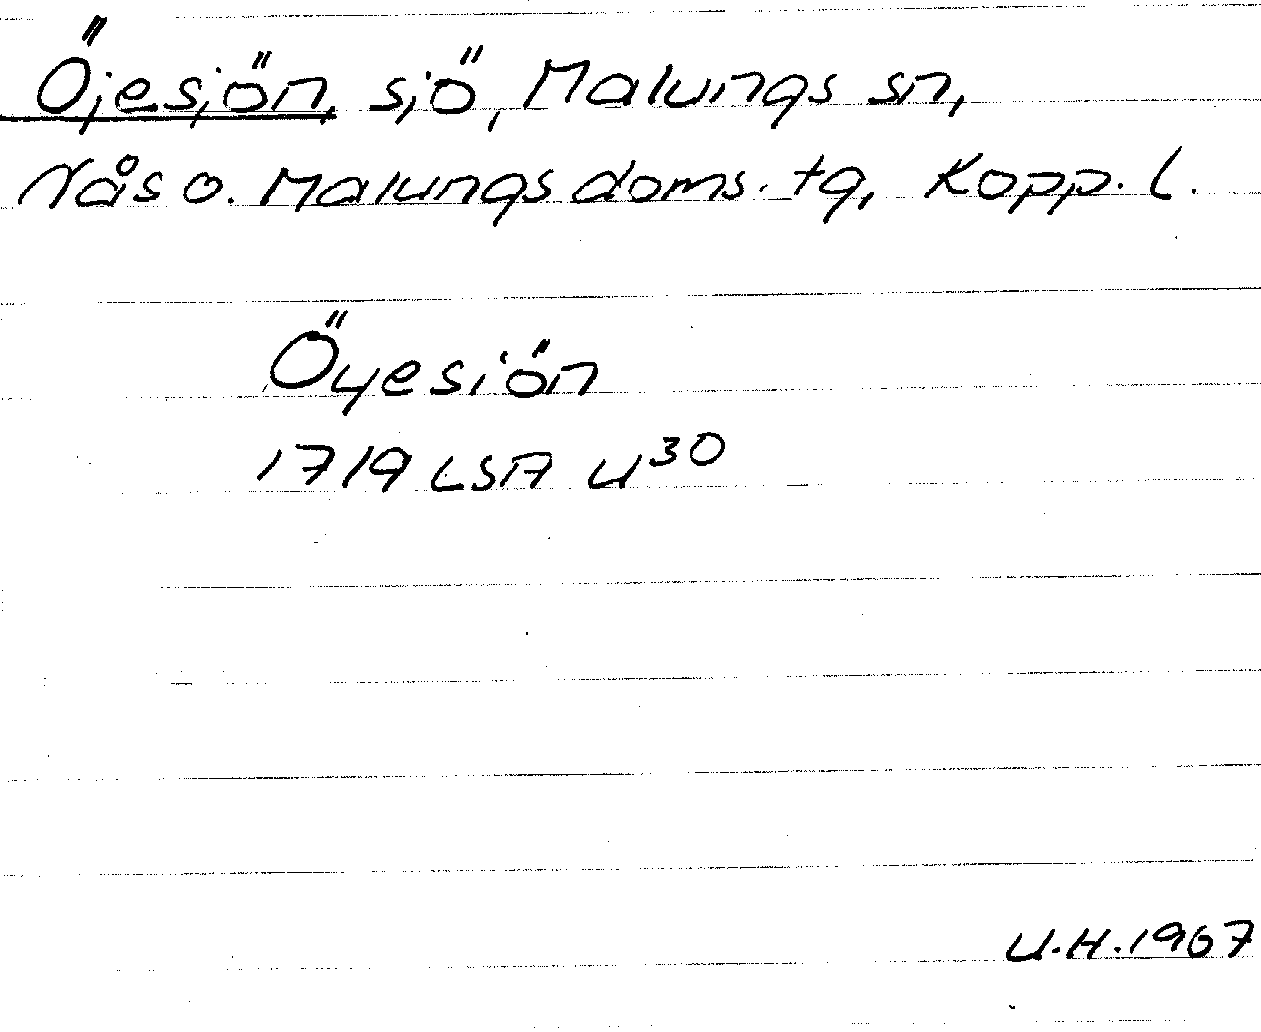 Öjesjön, sjö, Malungs sn,
Nås o. Malungs doms. tg, Kopp. l.
Öyesiön
1719 LSA U³⁰
U.H. 1967